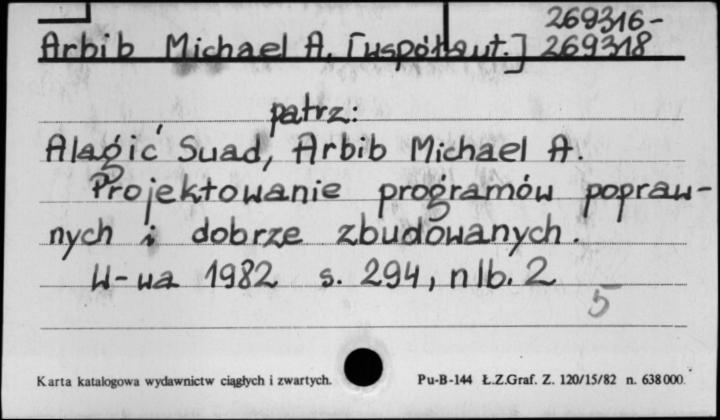 269316-
Arbib Michael A. [współaut.] 269318
patrz:
Alagić Suad, Arbib Michael A.
Projektowanie programów popraw-
nych i dobrze zbudowanych.
W-wa 1982 s. 294, nlb. 2
5
Karta katalogowa wydawnictw ciągłych i zwartych. Pu-B-144 Ł.Z.Graf. Z. 120/15/82 n. 638000.